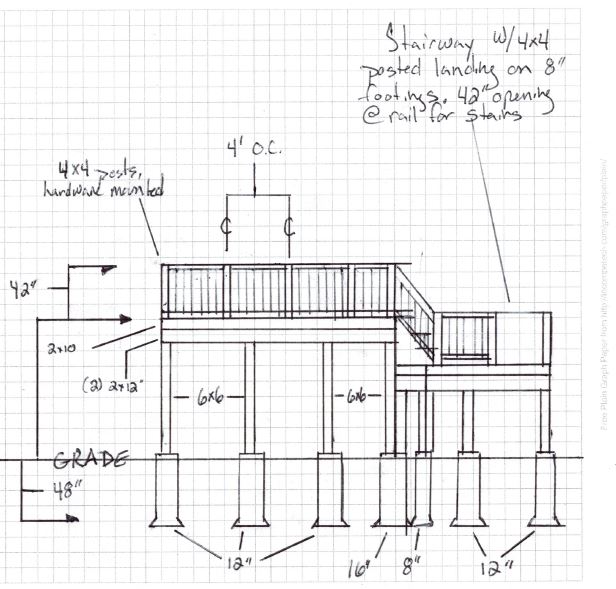 Stairway W/4x4
posted landing on 8"
footings. 42" opening
@ rail for stairs
4' O.C.
4x4 posts,
hardware mounted
42"
2x10
(2) 2x12"
6x6
6x6
GRADE
48"
12"
16"
8"
12"
Free Plain Graph Paper from